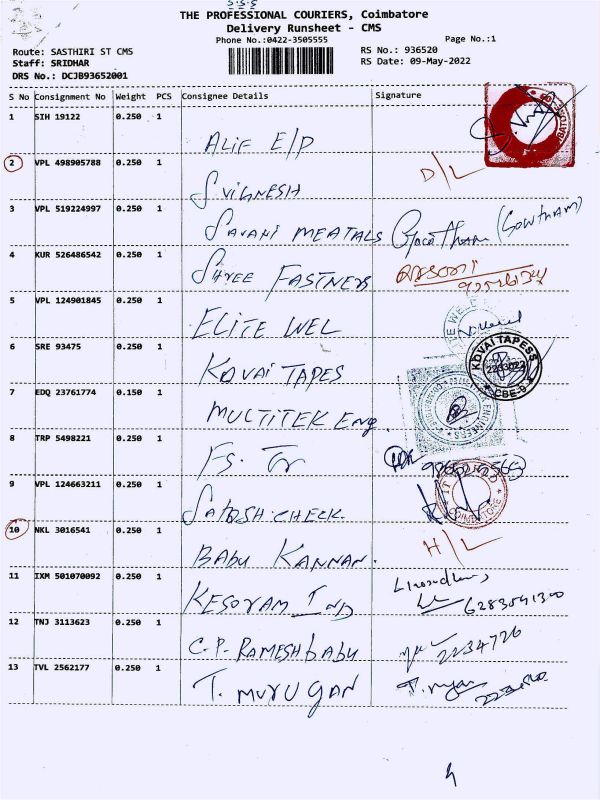 5-5-5
THE PROFESSIONAL COURIERS, Coimbatore
Delivery Runsheet - CMS
Phone No.:0422-3505555 Page No.:1
Route: SASTHIRI ST CMS RS No.: 936520
Staff: SRIDHAR RS Date: 09-May-2022
DRS No.: DCJB93652001
S No Consignment No Weight PCS Consignee Details Signature
1 SIH 19122 0.250 1
ALIF E/P
2 VPL 498905788 0.250 1 D/L
SVIGNESH
3 VPL 519224997 0.250 1
SAVANI MEATALS (GOWTHAM)
4 KUR 526486542 0.250 1
SHREE FASTNERS
5 VPL 124901845 0.250 1
ELITE WEL
6 SRE 93475 0.250 1
KOVAI TAPES KOVAI TAPESS 2233022 CBE-9
7 EDQ 23761774 0.150 1
MULTITEK Eng.
8 TRP 5498221 0.250 1
FS.
9 VPL 124663211 0.250 1
SATOSH CHECK COIMBATORE
10 NKL 3016541 0.250 1 H/L
BABU KANNAN.
11 IXM 501070092 0.250 1
KESORAM IND 6283591300
12 TNJ 3113623 0.250 1
C.P. RAMESH babu 2234726
13 TVL 2562177 0.250 1
T. MURUGAN